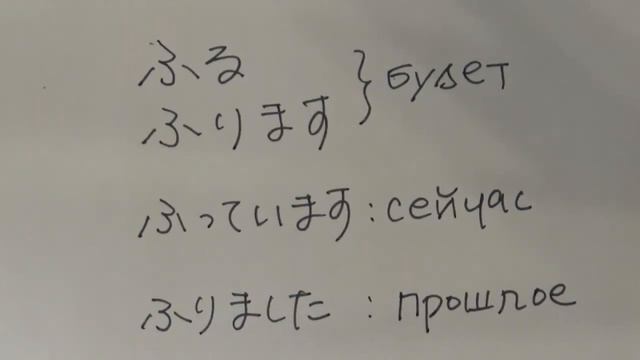 ふる } будет
ふります
ふっています : сейчас
ふりました : прошлое